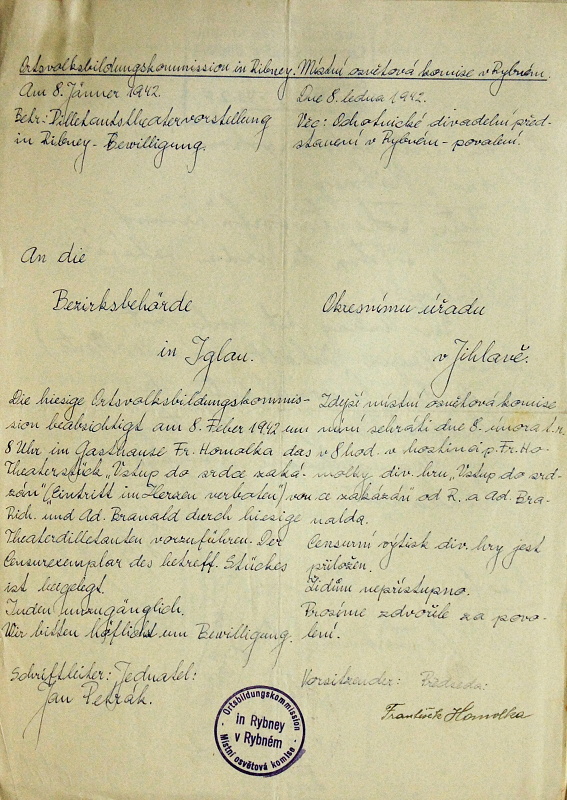 Ortsvolksbildungskommission in Ribney.
Am 8. Jänner 1942.
Betr: Dilletantstheatervorstellung
in Ribney - Bewilligung.
An die
Bezirksbehörde
in Iglau.
Die hiesige Ortsvolksbildungskommis-
sion beabsichtigt am 8. Feber 1942 um
8 Uhr im Gasthause Fr. Homolka das
Theaterstück „Vstup do srdce zaká-
zán" (Eintritt im Herzen verboten) von
Rich. und Ad. Branald durch hiesige
Theaterdilletanten vorzuführen. Der
Censurexemplar des betreff. Stückes
ist beigelegt.
Juden unzugänglich.
Wir bitten höflichst um Bewilligung.
Schriftleiter: Jednatel:
Jan Petrák.
Místní osvětová komise v Rybném.
Dne 8. ledna 1942.
Věc: Ochotnické divadelní před-
stavení v Rybném - povolení.
Okresnímu úřadu
v Jihlavě.
Zdejší místní osvětová komise
míní sehráti dne 8. února t.r.
v 8 hod. v hostinci p. Fr. Ho-
molky div. hru „Vstup do srd-
ce zakázán" od R. a Ad. Bra-
nalda.
Censurní výtisk div. hry jest
přiložen.
Židům nepřístupno.
Prosíme zdvořile za povo-
lení.
Vorsitzender: Předseda:
František Homolka
Ortsbildungskommission
in Rybney
v Rybném
Místní osvětová komise